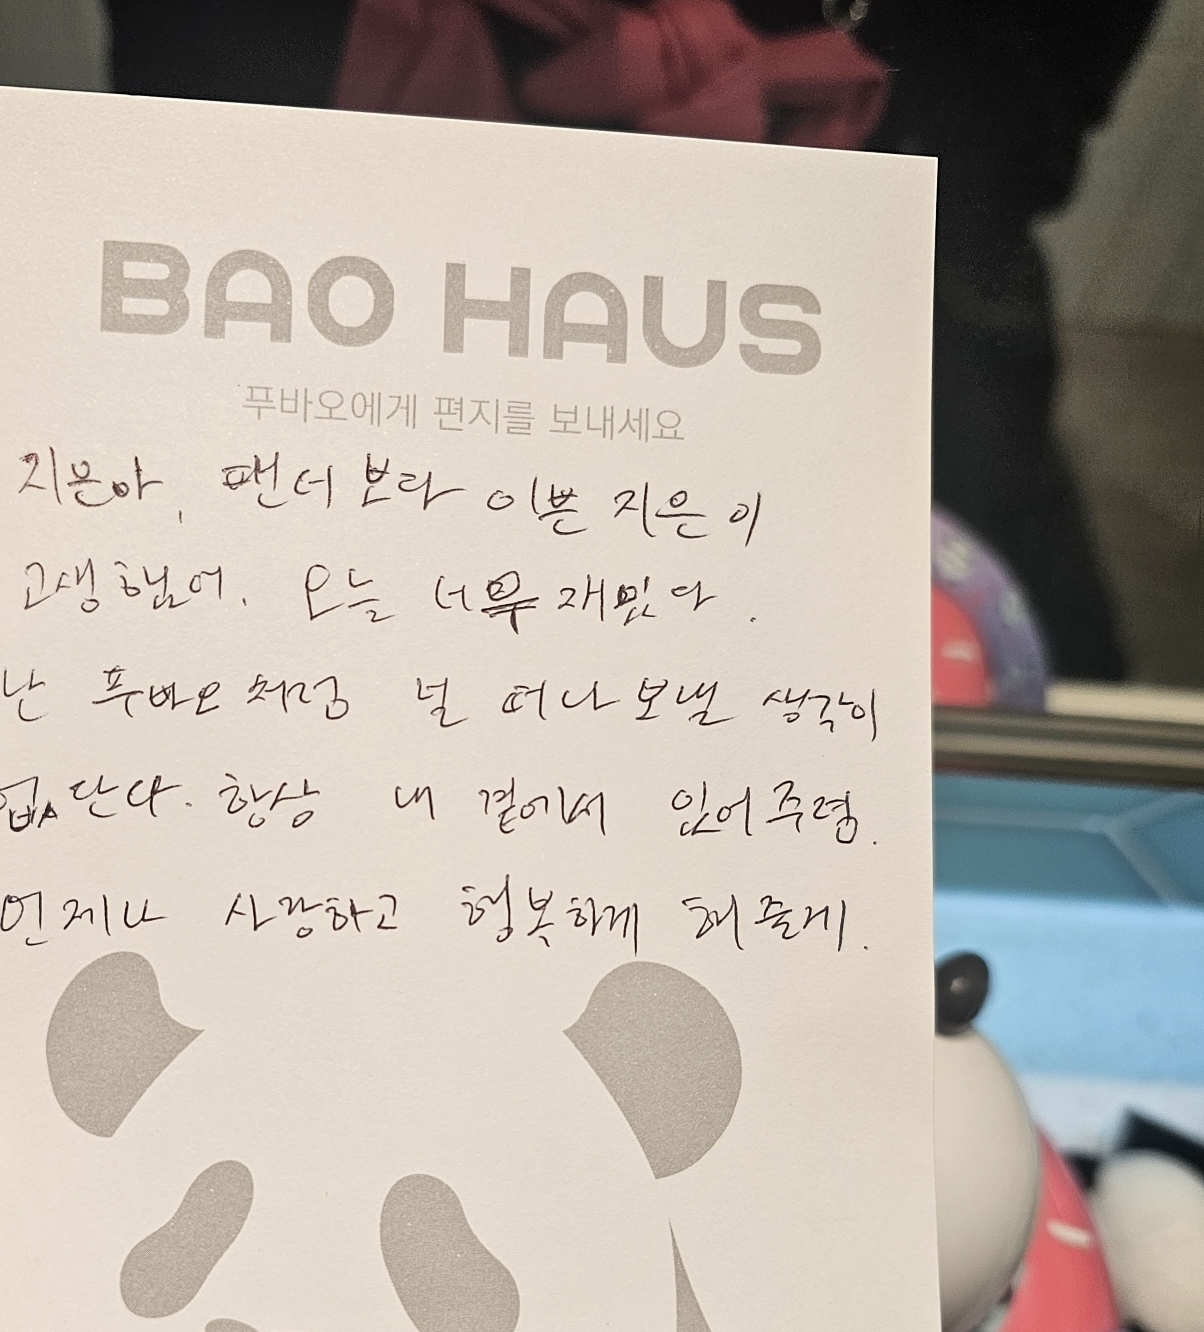 BAO HAUS
푸바오에게 편지를 보내세요
지은아, 팬더 보다 이쁜 지은이
고생했어. 오늘 너무 재밌다.
난 푸바오처럼 널 떠나보낼 생각이
없단다. 항상 내 곁에서 있어주렴.
언제나 사랑하고 행복하게 해줄게.